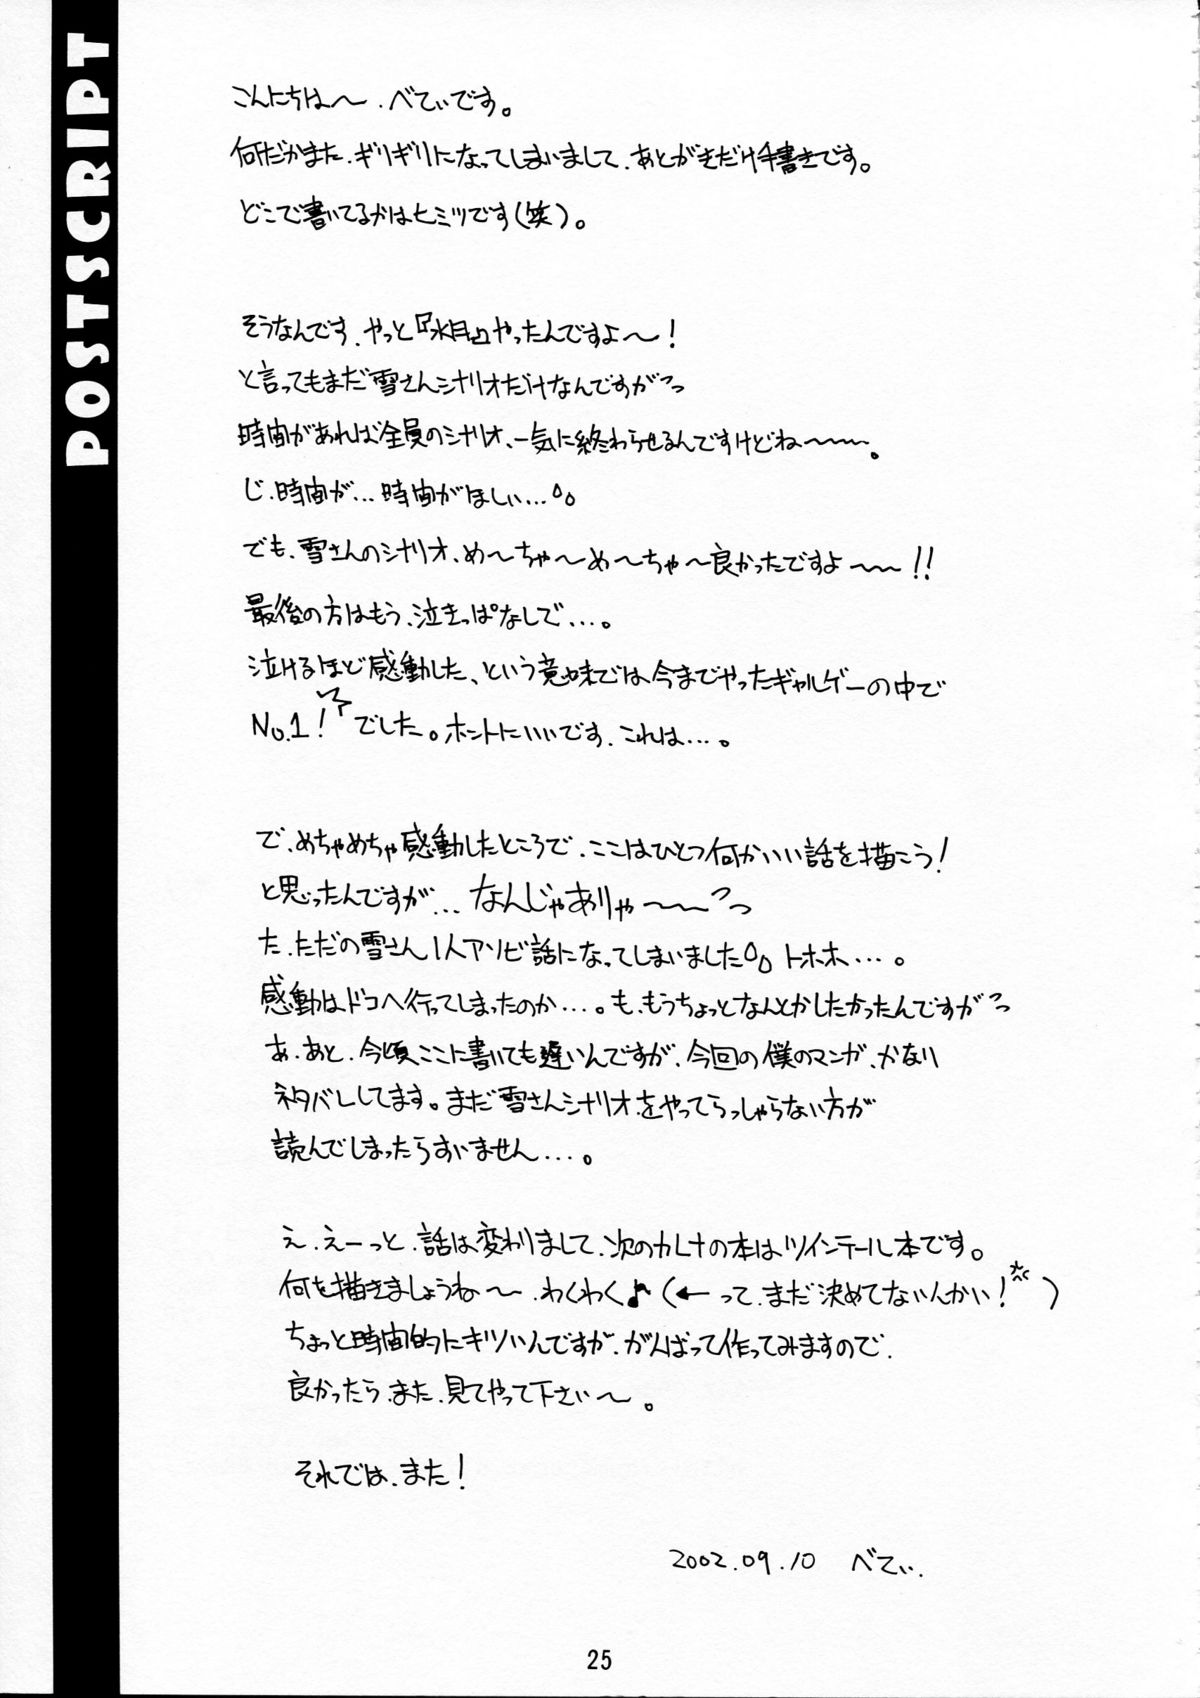 POSTSCRIPT
こんにちは〜、べてぃです。
何だかまた、ギリギリになってしまいまして、あとがきだけ手書きです。
どこで書いてるかはヒミツです(笑)。
そうなんです、やっと『水月』やったんですよ〜！
と言ってもまだ雪さんシナリオだけなんですがっっ
時間があれば全員のシナリオ、一気に終わらせるんですけどね〜〜。
じ、時間が…時間がほしい…。。
でも、雪さんのシナリオ、め〜ちゃ〜め〜ちゃ〜良かったですよ〜〜!!
最後の方はもう、泣きっぱなしで…。
泣けるほど感動した、という意味では今までやったギャルゲーの中で
No.1！でした。ホントにいいです、これは…。
で、めちゃめちゃ感動したところで、ここはひとつ何かいい話を描こう！
と思ったんですが…なんじゃありゃ〜〜っっ
た、ただの雪さん1人アソビ話になってしまいました。。トホホ…。
感動はドコへ行ってしまったのか…。も、もうちょっとなんとかしたかったんですがっっ
あ、あと、今頃ここに書いても遅いんですが、今回の僕のマンガ、かなり
ネタバレしてます。まだ雪さんシナリオをやってらっしゃらない方が
読んでしまったらすいません…。
え、えーっと、話は変わりまして、次のカレナの本はツインテール本です。
何を描きましょうね〜、わくわく♪(←って、まだ決めてないんかい！)
ちょっと時間的にキツいんですが、がんばって作ってみますので、
良かったら、また、見てやって下さい〜。
それでは、また！
2002.09.10 べてぃ.
25